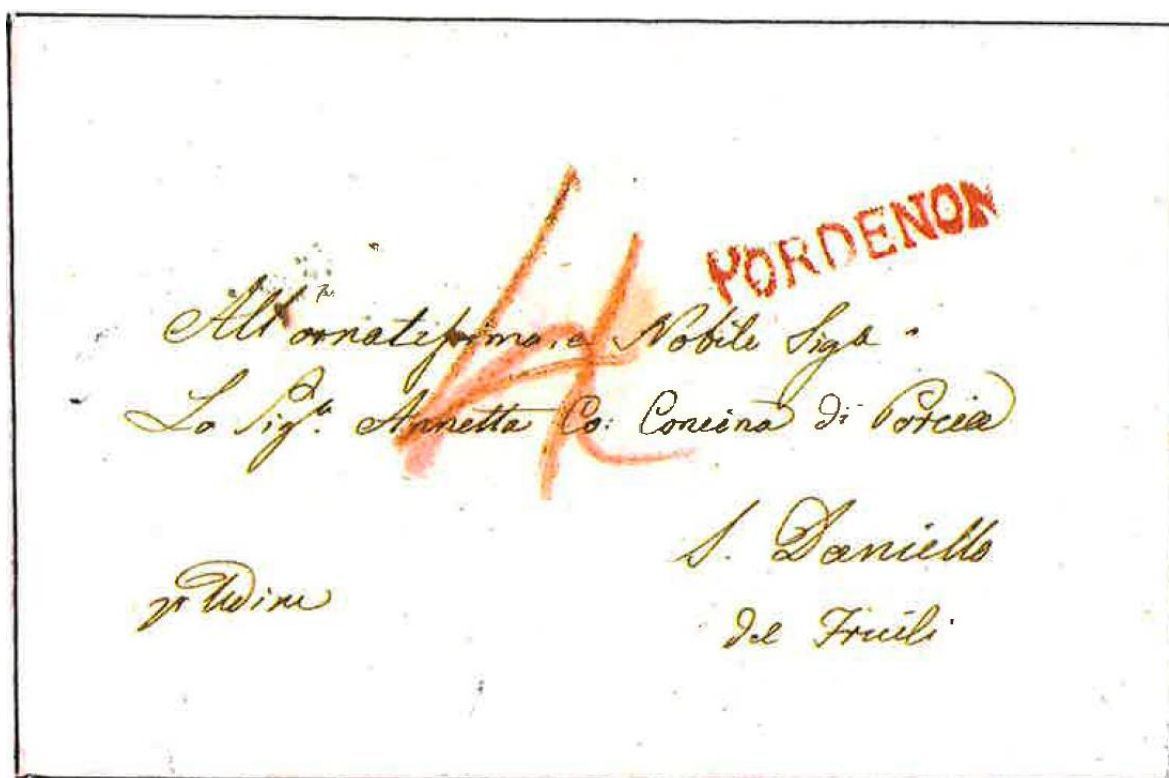 PORDENON
All'ornatissima e Nobile Sig.a
La Sig.a Annetta Co: Concina di Porcia
S. Daniello
del Friuli
pr Udine